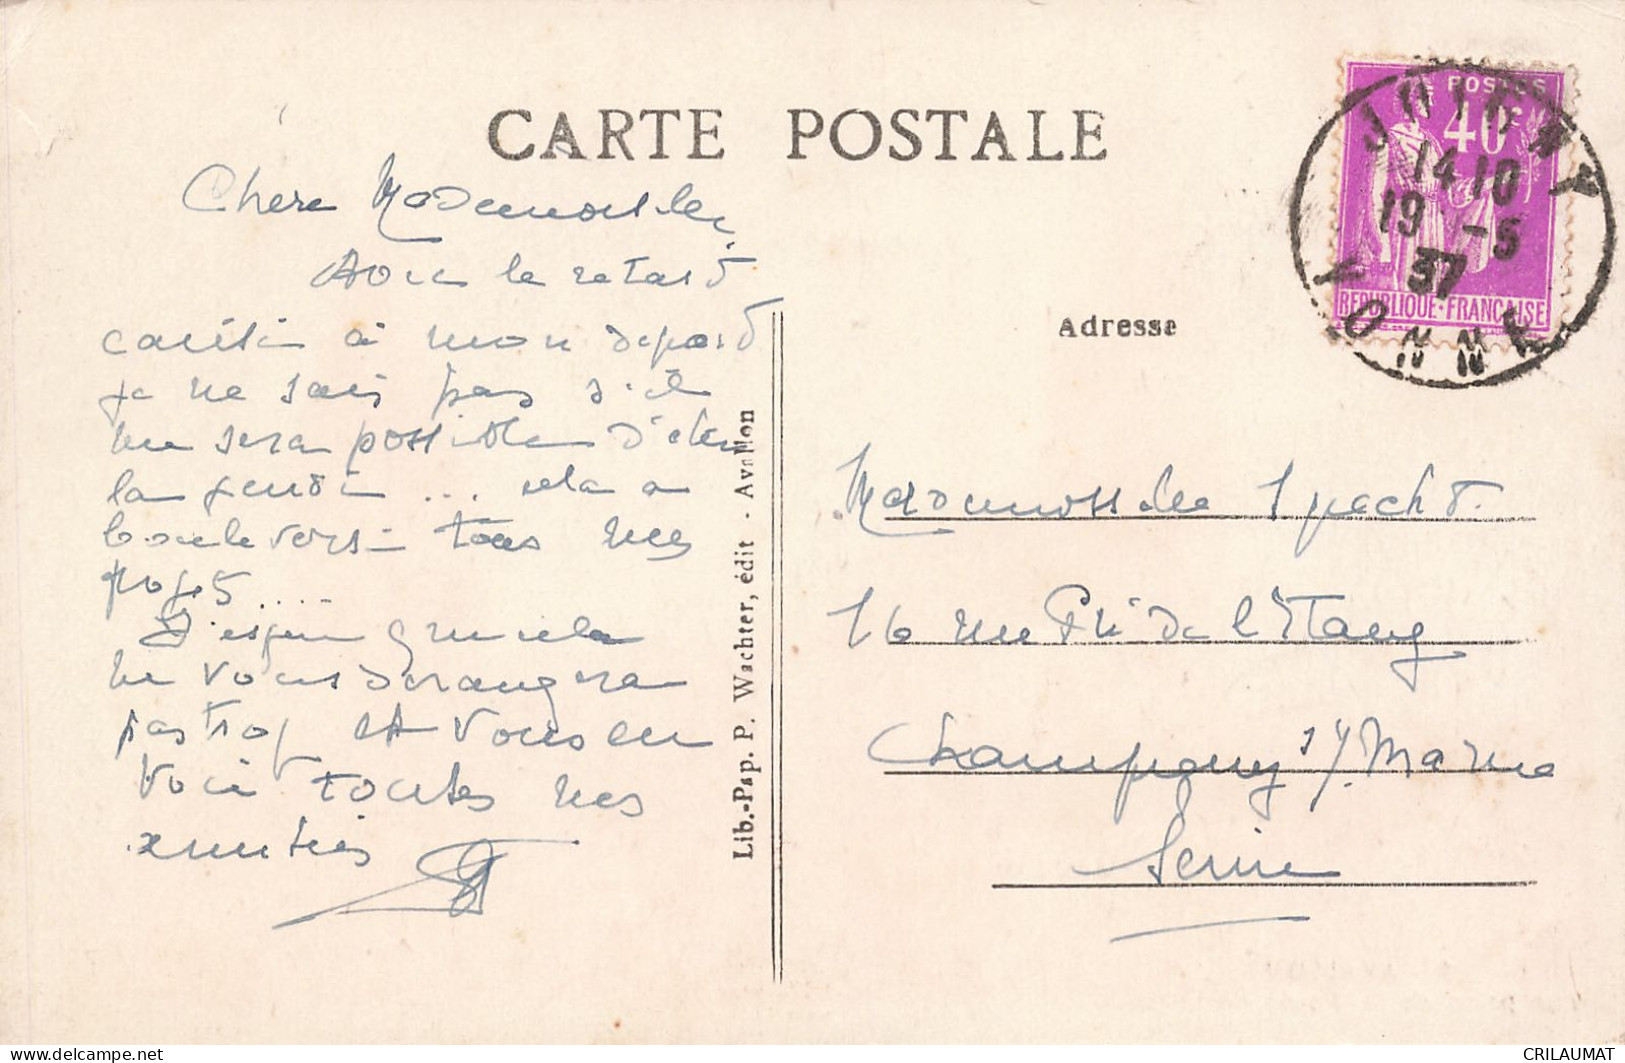 CARTE POSTALE
Chere Mademoiselle
Avec le retard
à mon départ
je ne sais pas s'il
me sera possible d'être
la jeudi ... cela a
bouleversé tous mes
.....
J'espère que cela
ne vous dérangera
pas trop et vous en
voie toutes mes
amitiés
Lib.-Pap. P. Wachter, édit - Avallon
POSTES
40c
REPUBLIQUE FRANÇAISE
JOIGNY
14 10
19 -5
37
YONNE
Adresse
Mademoiselle Specht.
16 rue Pré de l'Etang
Champigny s/ Marne
Seine
delcampe.net
CRILAUMAT